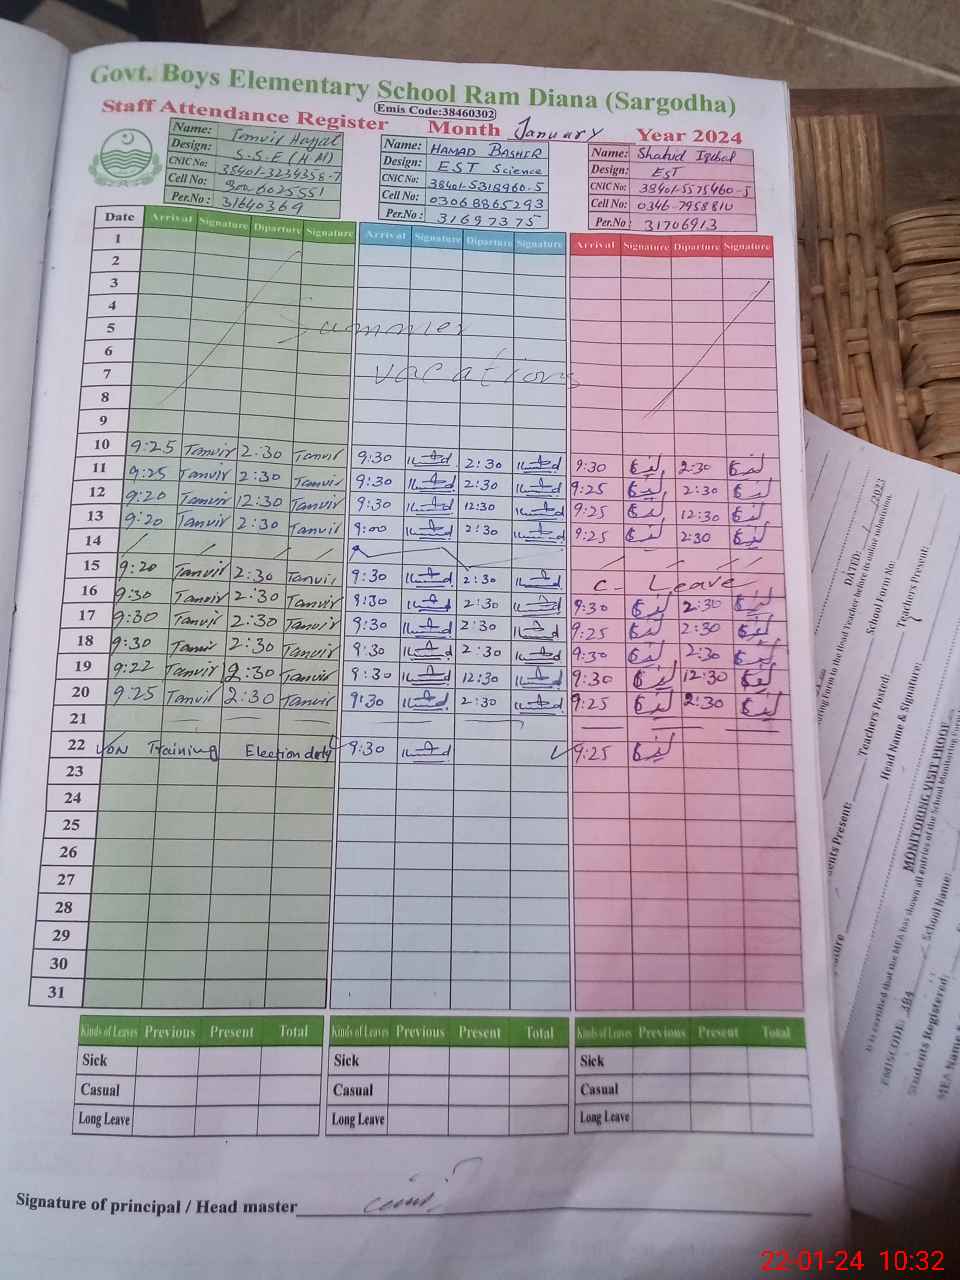 Govt. Boys Elementary School Ram Diana (Sargodha)
Emis Code:38460302
Staff Attendance Register Month January Year 2024
Name: Tanvir
Design: S.S.E (H.M)
CNIC No: 38401-3234358-7
Cell No: 300 6025551
Per.No: 31640369
Name: HAMAD BASHIR
Design: EST Science
CNIC No: 38401-5318960-5
Cell No: 03068865293
Per.No: 31697375
Name: Shahid Iqbal
Design: EST
CNIC No: 38401-5575460-5
Cell No: 0346-7958810
Per.No: 31706913
Date Arrival Signature Diparture Signature Arrival Signature Diparture Signature Arrival Signature Diparture Signature
1
2
3
4
5 Summer
6
7 vacations
8
9
10 9:25 Tanvir 2:30 Tanvir 9:30 2:30 9:30 2:30
11 9:25 Tanvir 2:30 Tanvir 9:30 2:30 9:25 2:30
12 9:20 Tanvir 12:30 Tanvir 9:30 12:30 9:25 12:30
13 9:20 Tanvir 2:30 Tanvir 9:00 2:30 9:25 2:30
14
15 9:20 Tanvir 2:30 Tanvir 9:30 2:30 C- Leave
16 9:30 Tanvir 2:30 Tanvir 9:30 2:30 9:30 2:30
17 9:30 Tanvir 2:30 Tanvir 9:30 2:30 9:25 2:30
18 9:30 Tanvir 2:30 Tanvir 9:30 2:30 9:30 2:30
19 9:22 Tanvir 2:30 Tanvir 9:30 12:30 9:30 12:30
20 9:25 Tanvir 2:30 Tanvir 9:30 2:30 9:25 2:30
21
22 ON Training Election duty 9:30 9:25
23
24
25
26
27
28
29
30
31
Kinds of Leaves Previous Present Total Kinds of Leaves Previous Present Total Kinds of Leaves Previous Present Total
Sick Sick Sick
Casual Casual Casual
Long Leave Long Leave Long Leave
Signature of principal / Head master
DATED: / /2023
School Form No:
Teachers Present:
Form to the Head Teacher before its online submission.
Teachers Posted:
Head Name & Signature:
MONITORING VISIT PROOF
It is certified that the MEA has shown all entries of the School Monitoring Form
EMISCODE: 384
School Name:
Students Registered:
MEA Name &
22-01-24 10:32